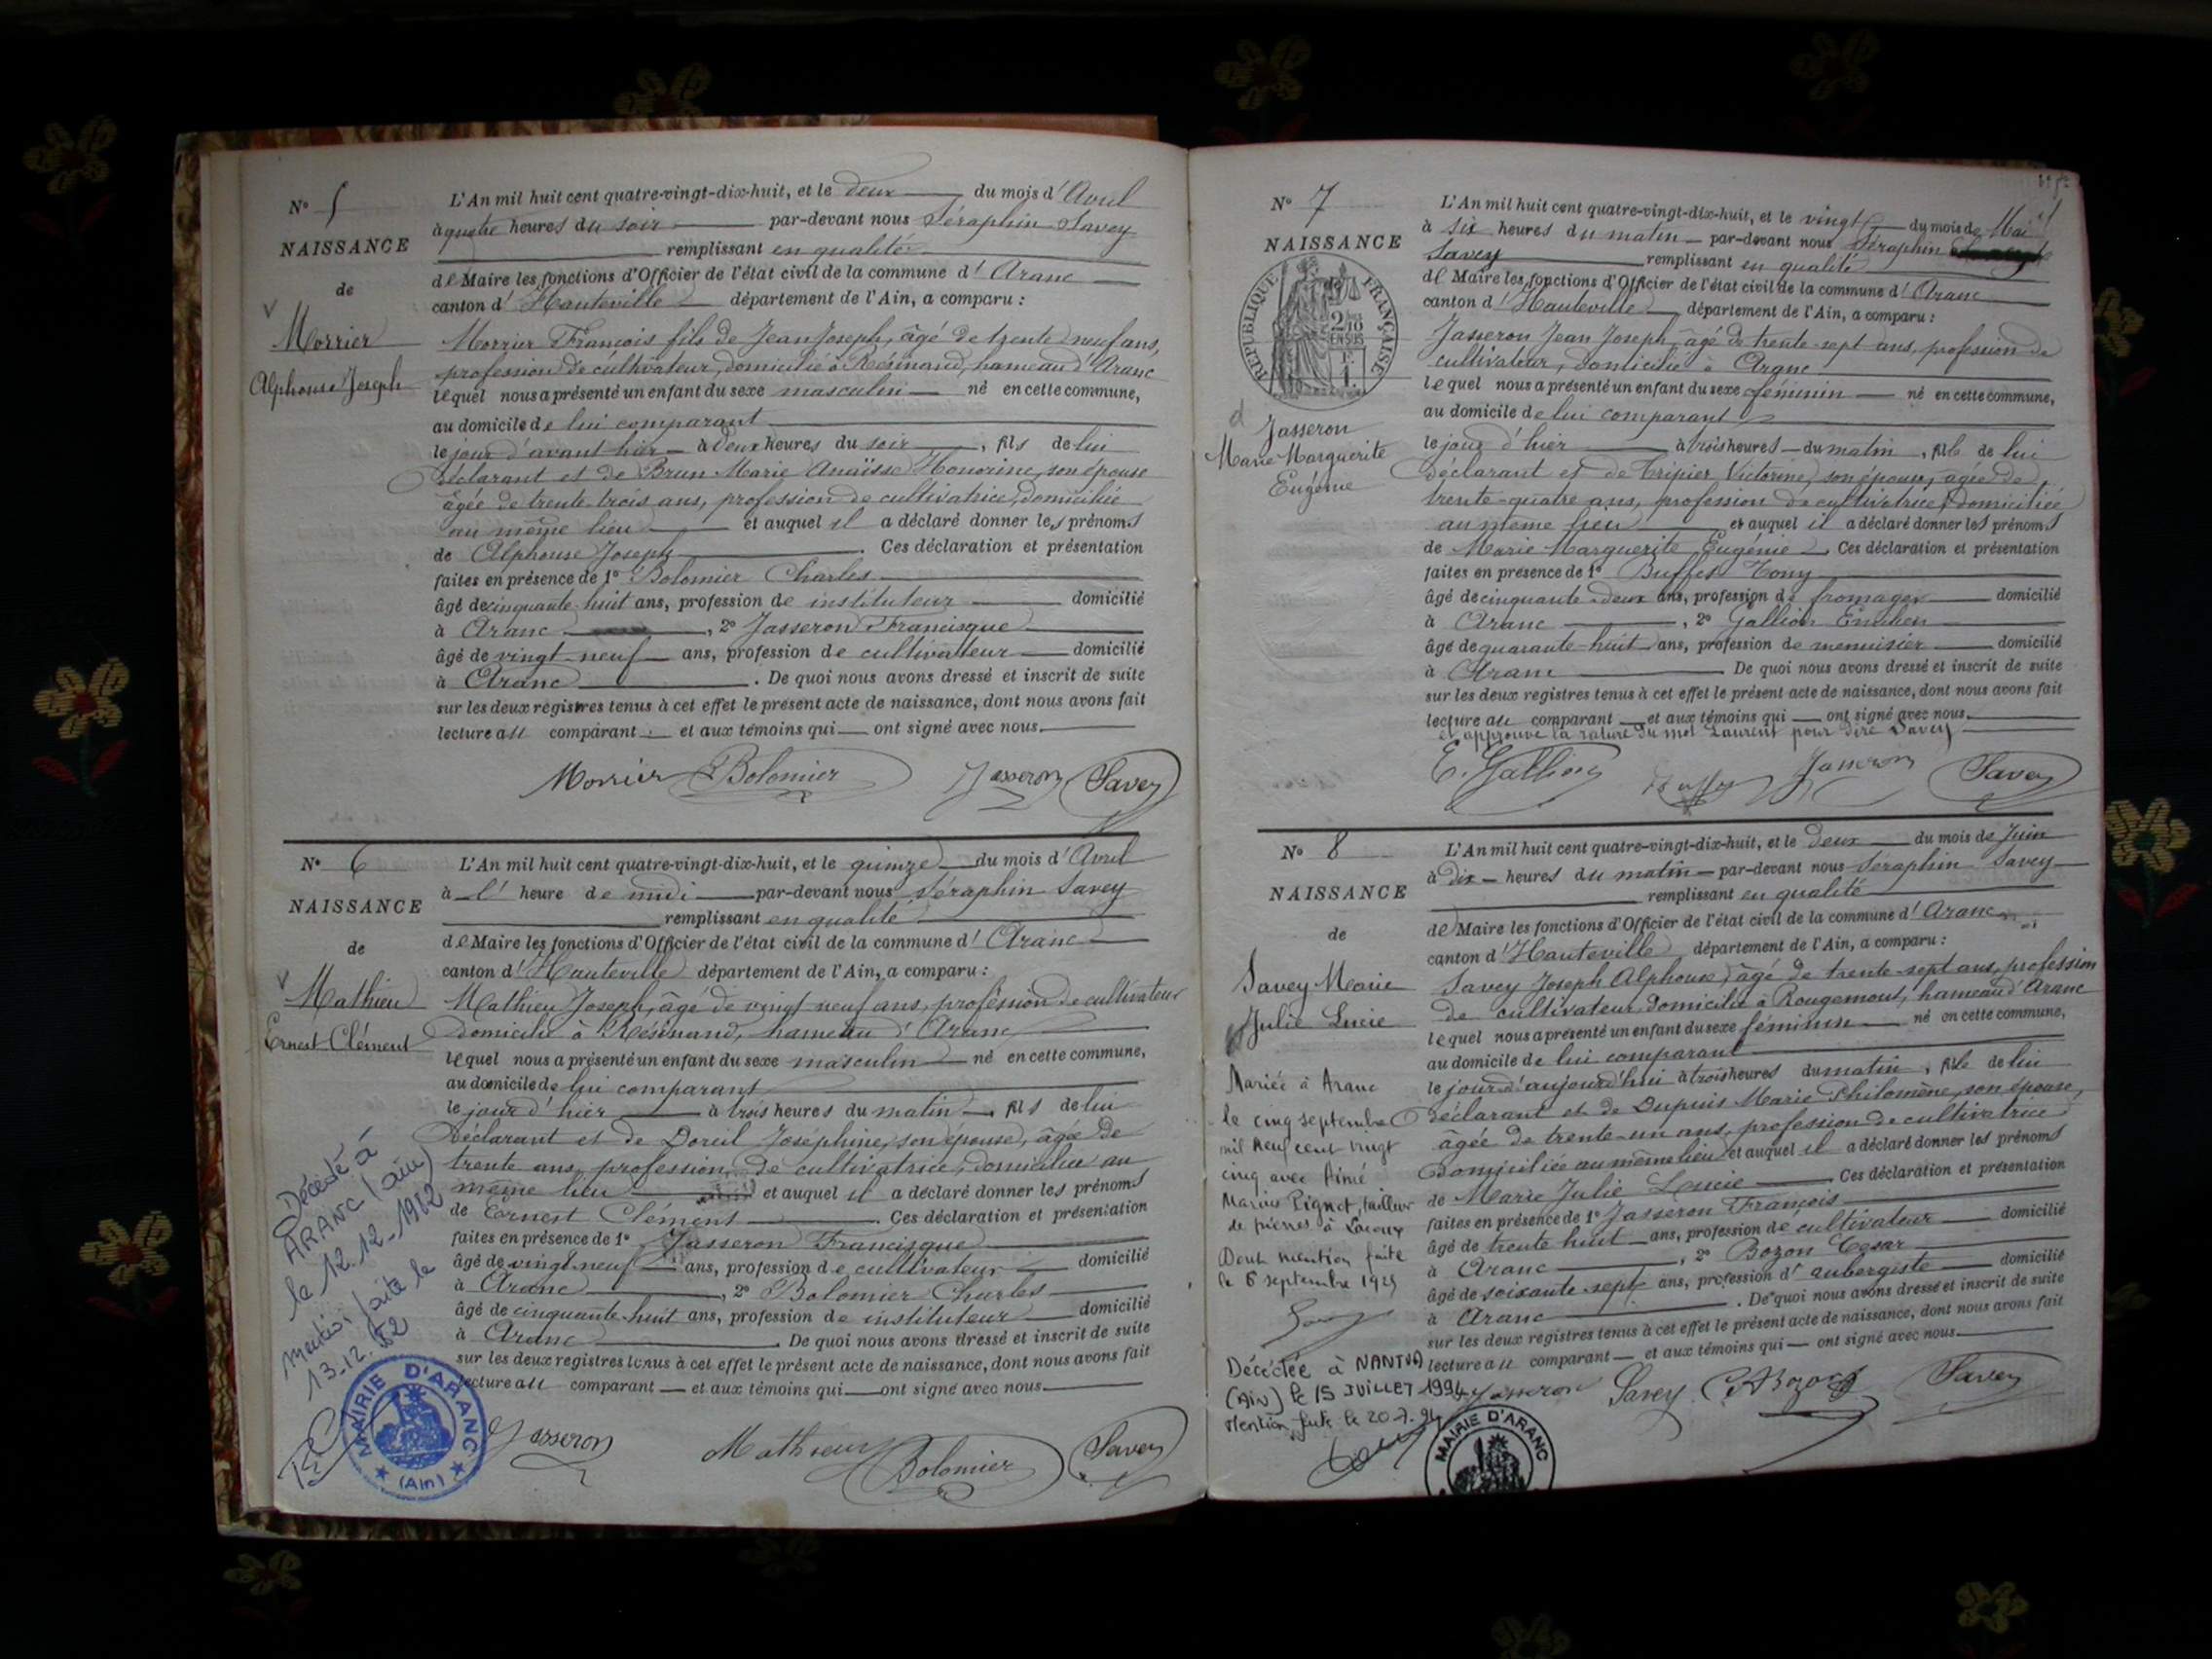 N° 5
NAISSANCE
de
Morrier
Alphonse Joseph
L'An mil huit cent quatre-vingt-dix-huit, et le deux du mois d'Avril
à quatre heures du soir par-devant nous Séraphin Savey
remplissant en qualité
de Maire les fonctions d'Officier de l'état civil de la commune d'Aranc
canton d'Hauteville département de l'Ain, a comparu :
Morrier François fils de Jean Joseph, âgé de trente neuf ans,
profession de cultivateur, domicilié à Résinand, hameau d'Aranc
lequel nous a présenté un enfant du sexe masculin né en cette commune,
au domicile de lui comparant
le jour d'avant hier à deux heures du soir, fils de lui
déclarant et de Brun Marie Anaïsse Honorine, son épouse
âgée de trente trois ans, profession de cultivatrice, domiciliée
au même lieu et auquel il a déclaré donner les prénoms
de Alphonse Joseph. Ces déclaration et présentation
faites en présence de 1° Bolomier Charles
âgé de cinquante-huit ans, profession de instituteur domicilié
à Aranc, 2° Jasseron Francisque
âgé de vingt-neuf ans, profession de cultivateur domicilié
à Aranc. De quoi nous avons dressé et inscrit de suite
sur les deux registres tenus à cet effet le présent acte de naissance, dont nous avons fait
lecture au comparant et aux témoins qui ont signé avec nous.
Morrier Bolomier Jasseron Savey
N° 6
NAISSANCE
de
Mathieu
Ernest Clément
Décédé à
ARANC (ain)
le 12.12.1962
mention faite le
13.12.62
MAIRIE D'ARANC
(Ain)
L'An mil huit cent quatre-vingt-dix-huit, et le quinze du mois d'Avril
à l'heure de midi par-devant nous Séraphin Savey
remplissant en qualité
de Maire les fonctions d'Officier de l'état civil de la commune d'Aranc
canton d'Hauteville département de l'Ain, a comparu :
Mathieu Joseph, âgé de vingt neuf ans, profession de cultivateur
domicilié à Résinand, hameau d'Aranc
lequel nous a présenté un enfant du sexe masculin né en cette commune,
au domicile de lui comparant
le jour d'hier à trois heures du matin, fils de lui
déclarant et de Doreil Joséphine, son épouse, âgée de
trente ans, profession de cultivatrice, domiciliée au
même lieu et auquel il a déclaré donner les prénoms
de Ernest Clément. Ces déclaration et présentation
faites en présence de 1° Jasseron Francisque
âgé de vingt-neuf ans, profession de cultivateur domicilié
à Aranc, 2° Bolomier Charles
âgé de cinquante-huit ans, profession de instituteur domicilié
à Aranc. De quoi nous avons dressé et inscrit de suite
sur les deux registres tenus à cet effet le présent acte de naissance, dont nous avons fait
lecture au comparant et aux témoins qui ont signé avec nous.
Jasseron Mathieu Bolomier Savey
N° 7
NAISSANCE
RÉPUBLIQUE FRANÇAISE
2/10 EN SUS
1 F.
Jasseron
Marie Marguerite
Eugénie
L'An mil huit cent quatre-vingt-dix-huit, et le vingt du mois de Mai
à six heures du matin par-devant nous Séraphin
Savey remplissant en qualité
de Maire les fonctions d'Officier de l'état civil de la commune d'Aranc
canton d'Hauteville département de l'Ain, a comparu :
Jasseron Jean Joseph, âgé de trente-sept ans, profession de
cultivateur, domicilié à Aranc
lequel nous a présenté un enfant du sexe féminin né en cette commune,
au domicile de lui comparant
le jour d'hier à trois heures du matin, fille de lui
déclarant et de Tripier Victorine, son épouse, âgée de
trente-quatre ans, profession de cultivatrice, domiciliée
au même lieu et auquel il a déclaré donner les prénoms
de Marie Marguerite Eugénie. Ces déclaration et présentation
faites en présence de 1° Buffet Tony
âgé de cinquante-deux ans, profession de fromager domicilié
à Aranc, 2° Gallion
âgé de quarante-huit ans, profession de menuisier domicilié
à Aranc De quoi nous avons dressé et inscrit de suite
sur les deux registres tenus à cet effet le présent acte de naissance, dont nous avons fait
lecture au comparant et aux témoins qui ont signé avec nous.
et approuvé la rature du mot Laurent pour dire Savey
E. Gallion Buffet Jasseron Savey
N° 8
NAISSANCE
de
Savey Marie
Julie Lucie
Mariée à Aranc
le cinq septembre
mil neuf cent vingt
cinq avec Aimé
Marius Pignet, tailleur
de pierres à Lacoux
Dont mention faite
le 6 septembre 1925
Décédée à NANTUA
(Ain) le 15 JUILLET 1994
Mention faite le 20.7.94
MAIRIE D'ARANC
L'An mil huit cent quatre-vingt-dix-huit, et le deux du mois de Juin
à dix heures du matin par-devant nous Séraphin Savey
remplissant en qualité
de Maire les fonctions d'Officier de l'état civil de la commune d'Aranc
canton d'Hauteville département de l'Ain, a comparu :
Savey Joseph Alphonse, âgé de trente-sept ans, profession
de cultivateur, domicilié à Rougemont, hameau d'Aranc
lequel nous a présenté un enfant du sexe féminin né en cette commune,
au domicile de lui comparant
le jour d'aujourd'hui à trois heures du matin, fille de lui
déclarant et de Dupuis Marie Philomène, son épouse,
âgée de trente-un ans, profession de cultivatrice
domiciliée au même lieu et auquel il a déclaré donner les prénoms
de Marie Julie Lucie Ces déclaration et présentation
faites en présence de 1° Jasseron François
âgé de trente huit ans, profession de cultivateur domicilié
à Aranc, 2° Bozon Cesar
âgé de soixante-sept ans, profession d'aubergiste domicilié
à Aranc. De quoi nous avons dressé et inscrit de suite
sur les deux registres tenus à cet effet le présent acte de naissance, dont nous avons fait
lecture au comparant et aux témoins qui ont signé avec nous.
Jasseron Savey Bozon Savey